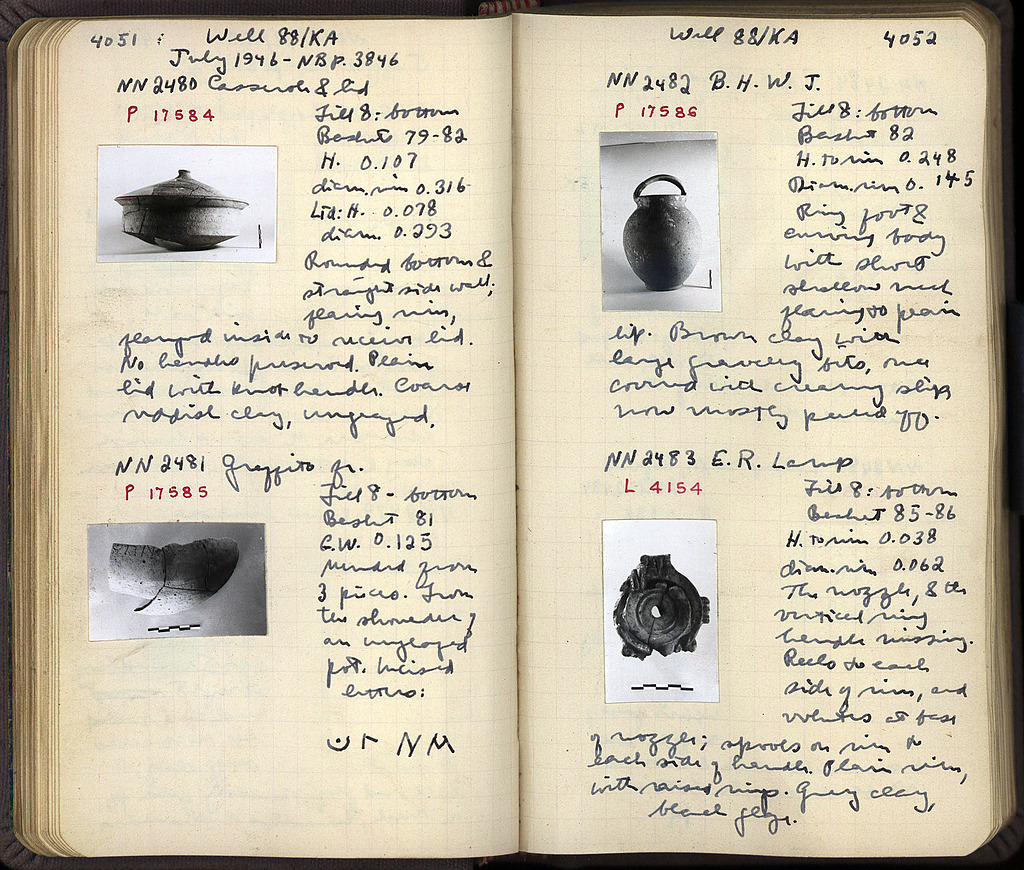 4051 : Well 88/KA
July 1946 - NBP. 3846
NN 2480 Casserole & lid
P 17584
Fill 8: bottom
Baskets 79-82
H. 0.107
diam. rim 0.316
Lid: H. 0.078
diam. 0.293
Rounded bottom &
straight side wall;
flaring rim,
flanged inside to receive lid.
No handles preserved. Plain
lid with knob handle. Coarse
reddish clay, unglazed.
NN 2481 Graffito fr.
P 17585
Fill 8 - bottom
Basket 81
G.W. 0.125
Mended from
3 pieces. From
the shoulder of
an unglazed
pot. Incised
letters:
NM
Well 88/KA 4052
NN 2482 B. H. W. J.
P 17586
Fill 8: bottom
Basket 82
H. to rim 0.248
Diam. rim 0.145
Ring foot &
curving body
with short
shallow neck
flaring to plain
lip. Brown clay with
large gravelly bits, once
covered with creamy slip,
now mostly peeled off.
NN 2483 E. R. Lamp
L 4154
Fill 8: bottom
Basket 85-86
H. to rim 0.038
diam. rim 0.062
The nozzle, & the
vertical ring
handle missing.
Reels to each
side of rim, and
volutes at base
of nozzle; spools on rim to
each side of handle. Plain rim,
with raised rings. Grey clay,
black glaze.